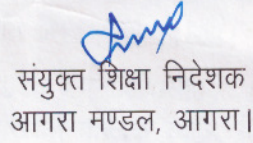 संयुक्त शिक्षा निदेशक
आगरा मण्डल, आगरा।